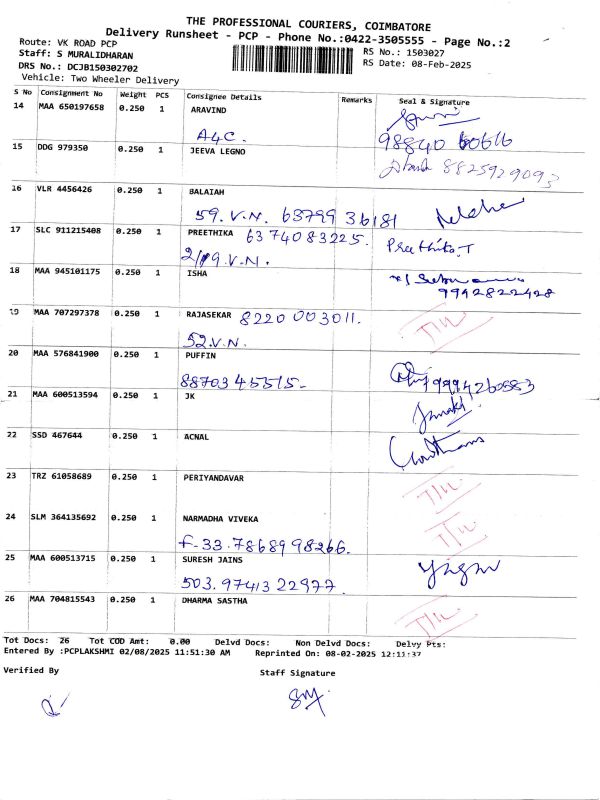 THE PROFESSIONAL COURIERS, COIMBATORE
Delivery Runsheet - PCP - Phone No.:0422-3505555 - Page No.:2
Route: VK ROAD PCP
Staff: S MURALIDHARAN
DRS No.: DCJB150302702
Vehicle: Two Wheeler Delivery
RS No.: 1503027
RS Date: 08-Feb-2025
S No Consignment No Weight PCS Consignee Details Remarks Seal & Signature
14 MAA 650197658 0.250 1 ARAVIND
A4C.
15 DDG 979350 0.250 1 JEEVA LEGNO
8825929093
16 VLR 4456426 0.250 1 BALAIAH
59. V.N. 63799 36181
17 SLC 911215408 0.250 1 PREETHIKA 6374083225. Preethika.T
2/19.V.N.
18 MAA 945101175 0.250 1 ISHA
9942822428
19 MAA 707297378 0.250 1 RAJASEKAR 8220 003011.
52.V.N.
20 MAA 576841900 0.250 1 PUFFIN
8870345515. 9994260583
21 MAA 600513594 0.250 1 JK
22 SSD 467644 0.250 1 ACNAL
23 TRZ 61058689 0.250 1 PERIYANDAVAR
24 SLM 364135692 0.250 1 NARMADHA VIVEKA
F-33. 7868998266.
25 MAA 600513715 0.250 1 SURESH JAINS
503. 97413 22977.
26 MAA 704815543 0.250 1 DHARMA SASTHA
Tot Docs: 26 Tot COD Amt: 0.00 Delvd Docs: Non Delvd Docs: Delvy Pts:
Entered By :PCPLAKSHMI 02/08/2025 11:51:30 AM Reprinted On: 08-02-2025 12:11:37
Verified By Staff Signature